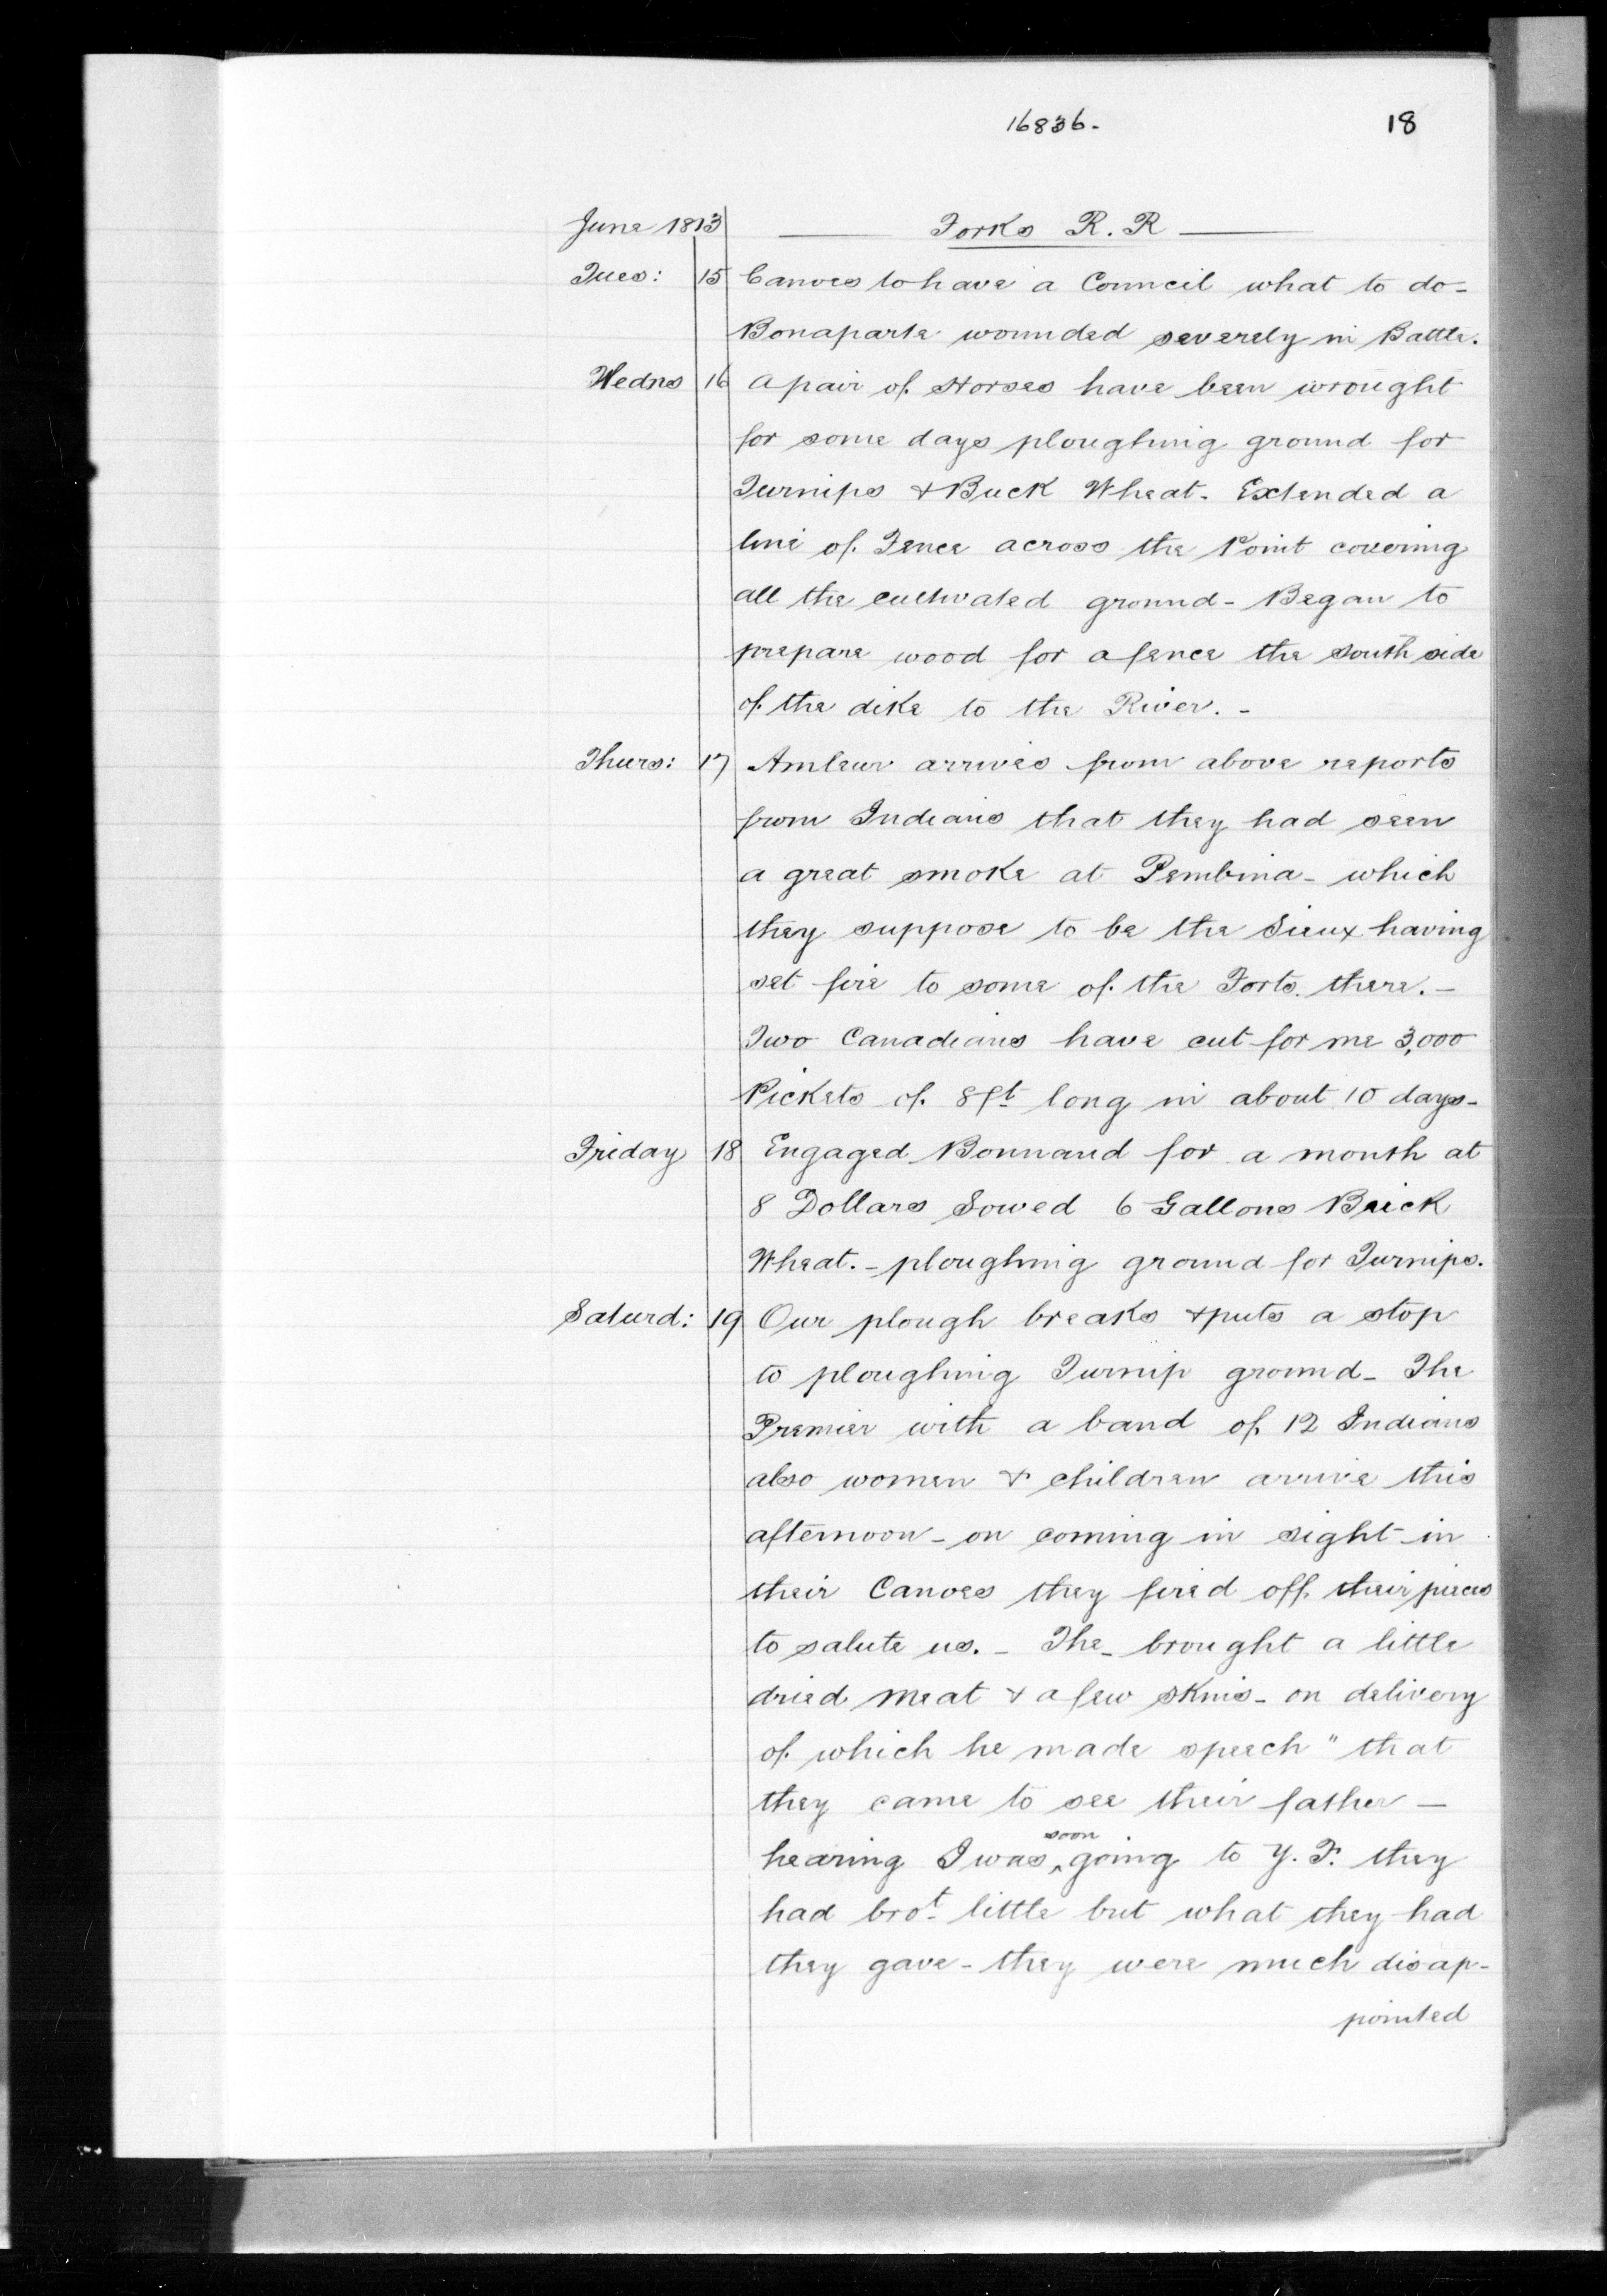 16836. 18
June 1813 Forks R. R
Tues: 15 Canoes to have a Council what to do -
Bonaparte wounded severely in Battle.
Wedns 16 A pair of Horses have been wrought
for some days ploughing ground for
Turnips & Buck Wheat. Extended a
line of Fence across the Point covering
all the cultivated ground - Began to
prepare wood for a fence the south side
of the dike to the River. -
Thurs: 17 arrives from above reports
from Indians that they had seen
a great smoke at Pembina - which
they suppose to be the Sieux having
set fire to some of the Forts there. -
Two Canadians have cut for me 3,000
Pickets of 8 ft long in about 10 days -
Friday 18 Engaged Bonnaud for a month at
8 Dollars Sowed 6 Gallons Buck
Wheat. - ploughing ground for Turnips.
Saturd: 19 Our plough breaks & puts a stop
to ploughing Turnip ground - The
Premier with a band of 12 Indians
also women & children arrive this
afternoon - on coming in sight in
their Canoes they fired off their pieces
to salute us. - The - brought a little
dried meat & a few skins - on delivery
of which he made speech " that
they came to see their father -
hearing I was soon going to Y. F. they
had brot little but what they had
they gave - they were much disap-
pointed